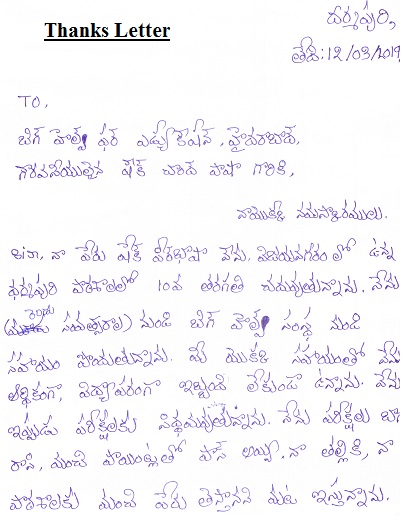 Thanks Letter
ధర్మపురి,
తేది: 12/03/2019
TO,
బిగ్ హెల్ప్ ఫర్ ఎడ్యుకేషన్, హైదరాబాద్,
గౌరవనీయులైన షేక్ చాంద్ పాషా గారికి,
నాయొక్క నమస్కారములు.
Sir, నా పేరు షేక్ మీరాభాషా నేను. విజయనగరం లో ఉన్న
ధర్మపురి పాఠశాలలో 10వ తరగతి చదువుతున్నాను. నేను
సంవత్సరాల) నుండి బిగ్ హెల్ప్ సంస్థ నుండి
సహాయం పొందుతున్నాను. మీ యొక్క సహాయంతో నేను
ఆర్థికంగా, విద్యాపరంగా ఇబ్బంది లేకుండా ఉన్నాను. నేను
ఇప్పుడు పరీక్షలకు సిద్ధమవుతున్నాను. నేను పరీక్షలు బాగా
రాసి, మంచి పాయింట్లతో పాస్ అయ్యి. నా తల్లికి, నా
పాఠశాలకు మంచి పేరు తెస్తానని మాట ఇస్తున్నాను.